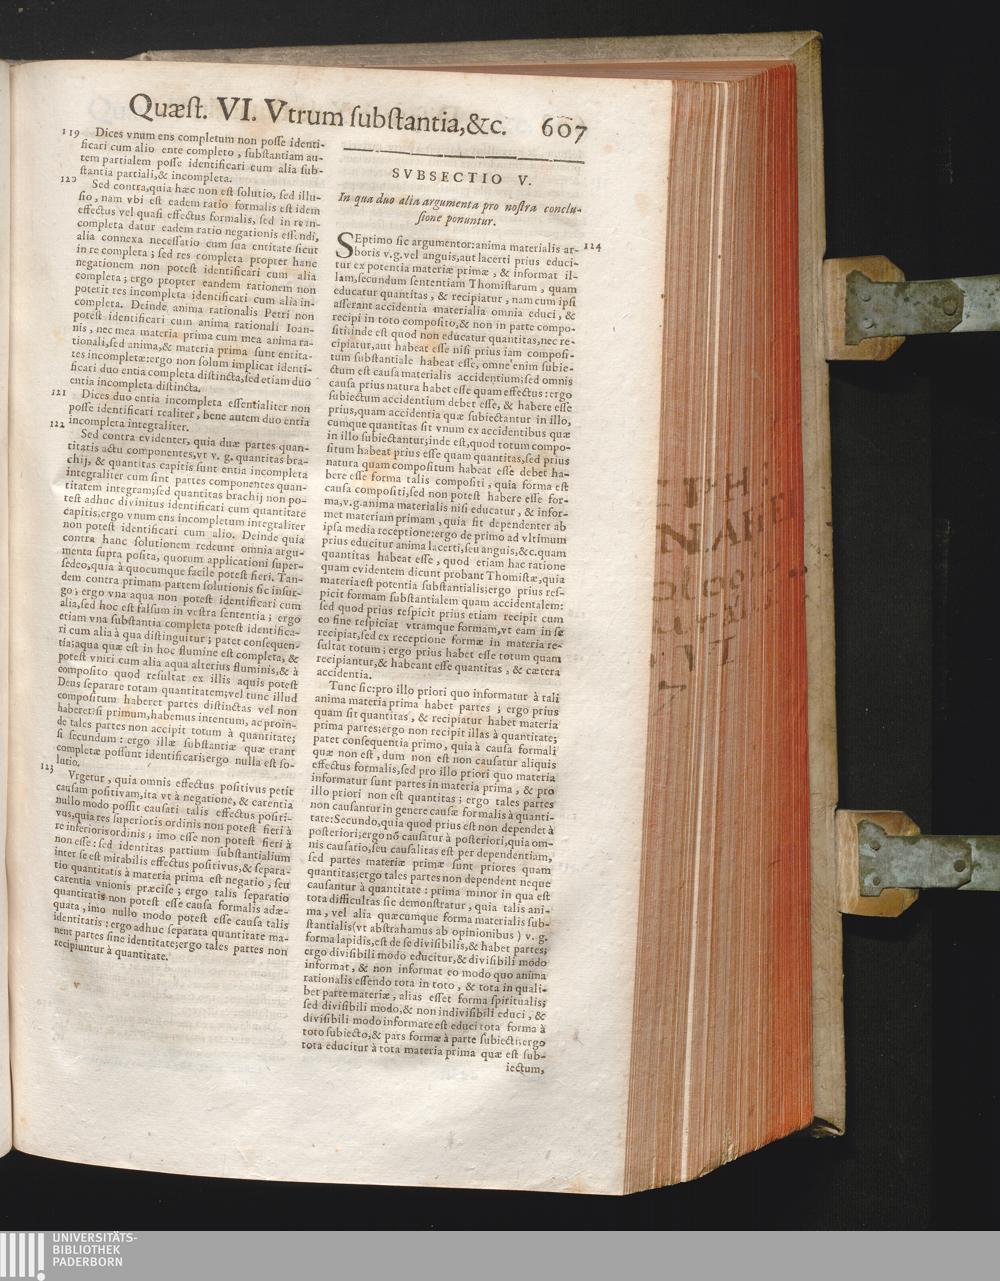 Quæst. VI. Vtrum substantia,&c. 607
119 Dices vnum ens completum non posse identi-
ficari cum alio ente completo, substantiam au-
tem partialem posse identificari cum alia sub-
stantia partiali,& incompleta.
120 Sed contra,quia hæc non est solutio, sed illu-
sio, nam vbi est eadem ratio formalis est idem
effectus vel quasi effectus formalis, sed in re in-
completa datur eadem ratio negationis essendi,
alia connexa necessario cum sua entitate sicut
in re completa; sed res completa propter hanc
negationem non potest identificari cum alia
completa; ergo propter eandem rationem non
poterit res incompleta identificari cum alia in-
completa. Deinde anima rationalis Petri non
potest identificari cum anima rationali Ioan-
nis, nec mea materia prima cum mea anima ra-
tionali,sed anima,& materia prima sunt entita-
tes incompletæ:ergo non solum implicat identi-
ficari duo entia completa distincta,sed etiam duo
entia incompleta distincta.
121 Dices duo entia incompleta essentialiter non
posse identificari realiter, bene autem duo entia
incompleta integraliter.
122 Sed contra evidenter, quia duæ partes quan-
titatis actu componentes,vt v. g. quantitas bra-
chij, & quantitas capitis sunt entia incompleta
integraliter cum sint partes componentes quan-
titatem integram;sed quantitas brachij non po-
test adhuc divinitus identificari cum quantitate
capitis;ergo vnum ens incompletum integraliter
non potest identificari cum alio. Deinde quia
contra hanc solutionem redeunt omnia argu-
menta supra posita, quorum applicationi super-
sedeo,quia à quocumque facile potest fieri. Tan-
dem contra primam partem solutionis sic insur-
go; ergo vna aqua non potest identificari cum
alia,sed hoc est falsum in vestra sententia; ergo
etiam vna substantia completa potest identifica-
ri cum alia à qua distinguitur; patet consequen-
tia;aqua quæ est in hoc flumine est completa, &
potest vniri cum alia aqua alterius fluminis,& à
composito quod resultat ex illis aquis potest
Deus separare totam quantitatem;vel tunc illud
compositum haberet partes distinctas vel non
haberet:si primum,habemus intentum, ac proin-
de tales partes non accipit totum à quantitate;
si secundum: ergo illæ substantiæ quæ erant
completæ possunt identificari:ergo nulla est so-
lutio.
123 Vrgetur, quia omnis effectus positivus petit
causam positivam,ita vt à negatione, & carentia
nullo modo possit causari talis effectus positi-
vus,quia res superioris ordinis non potest fieri à
re inferioris ordinis; imo esse non potest fieri à
non esse: sed identitas partium substantialium
inter se est mirabilis effectus positivus,& separa-
tio quantitatis à materia prima est negatio, seu
carentia vnionis præcise; ergo talis separatio
quantitatis non potest esse causa formalis adæ-
quata, imo nullo modo potest esse causa talis
identitatis: ergo adhuc separata quantitate ma-
nent partes sine identitate;ergo tales partes non
recipiuntur à quantitate.
SVBSECTIO V.
In qua duo alia argumenta pro nostra conclu-
sione ponuntur.
SEptimo sic argumentor:anima materialis ar- 124
boris v.g.vel anguis,aut lacerti prius educi-
tur ex potentia materiæ primæ, & informat il-
lam,secundum sententiam Thomistarum, quam
educatur quantitas, & recipiatur, nam cum ipsi
asserant accidentia materialia omnia educi, &
recipi in toto composito,& non in parte compo-
siti:inde est quod non educatur quantitas,nec re-
cipiatur,aut habeat esse nisi prius iam composi-
tum substantiale habeat esse, omne enim subie-
ctum est causa materialis accidentium;sed omnis
causa prius natura habet esse quam effectus: ergo
subiectum accidentium debet esse, & habere esse
prius,quam accidentia quæ subiectantur in illo,
cumque quantitas sit vnum ex accidentibus quæ
in illo subiectantur;inde est,quod totum compo-
situm habeat prius esse quam quantitas,sed prius
natura quam compositum habeat esse debet ha-
bere esse forma talis compositi, quia forma est
causa compositi,sed non potest habere esse for-
ma,v.g.anima materialis nisi educatur, & infor-
met materiam primam, quia sit dependenter ab
ipsa media receptione:ergo de primo ad vltimum
prius educitur anima lacerti,seu anguis,&c.quam
quantitas habeat esse, quod etiam hac ratione
quam evidentem dicunt probant Thomistæ,quia
materia est potentia substantialis;ergo prius res-
picit formam substantialem quam accidentalem:
sed quod prius respicit prius etiam recipit cum
eo fine respiciat vtramque formam,vt eam in se
recipiat,sed ex receptione formæ in materia re-
sultat totum; ergo prius habet esse totum quam
recipiantur,& habeant esse quantitas, & cætera
accidentia.
Tunc sic:pro illo priori quo informatur à tali
anima materia prima habet partes; ergo prius
quam sit quantitas, & recipiatur habet materia
prima partes;ergo non recipit illas à quantitate;
patet consequentia primo, quia à causa formali
quæ non est, dum non est non causatur aliquis
effectus formalis,sed pro illo priori quo materia
informatur sunt partes in materia prima, & pro
illo priori non est quantitas; ergo tales partes
non causantur in genere causæ formalis à quanti-
tate:Secundo,quia quod prius est non dependet à
posteriori;ergo nõ causatur à posteriori,quia om-
nis causatio,seu causalitas est per dependentiam,
sed partes materiæ primæ sunt priores quam
quantitas;ergo tales partes non dependent neque
causantur à quantitate: prima minor in qua est
tota difficultas sic demonstratur, quia talis ani-
ma, vel alia quæcumque forma materialis sub-
stantialis(vt abstrahamus ab opinionibus) v. g.
forma lapidis,est de se divisibilis,& habet partes;
ergo divisibili modo educitur,& divisibili modo
informat, & non informat eo modo quo anima
rationalis essendo tota in toto, & tota in quali-
bet parte materiæ, alias esset forma spiritualis;
sed divisibili modo,& non indivisibili educi, &
divisibili modo informare est educi tota forma à
toto subiecto,& pars formæ à parte subiecti;ergo
tota educitur à tota materia prima quæ est sub-
iectum,
UNIVERSITÄTS-
BIBLIOTHEK
PADERBORN